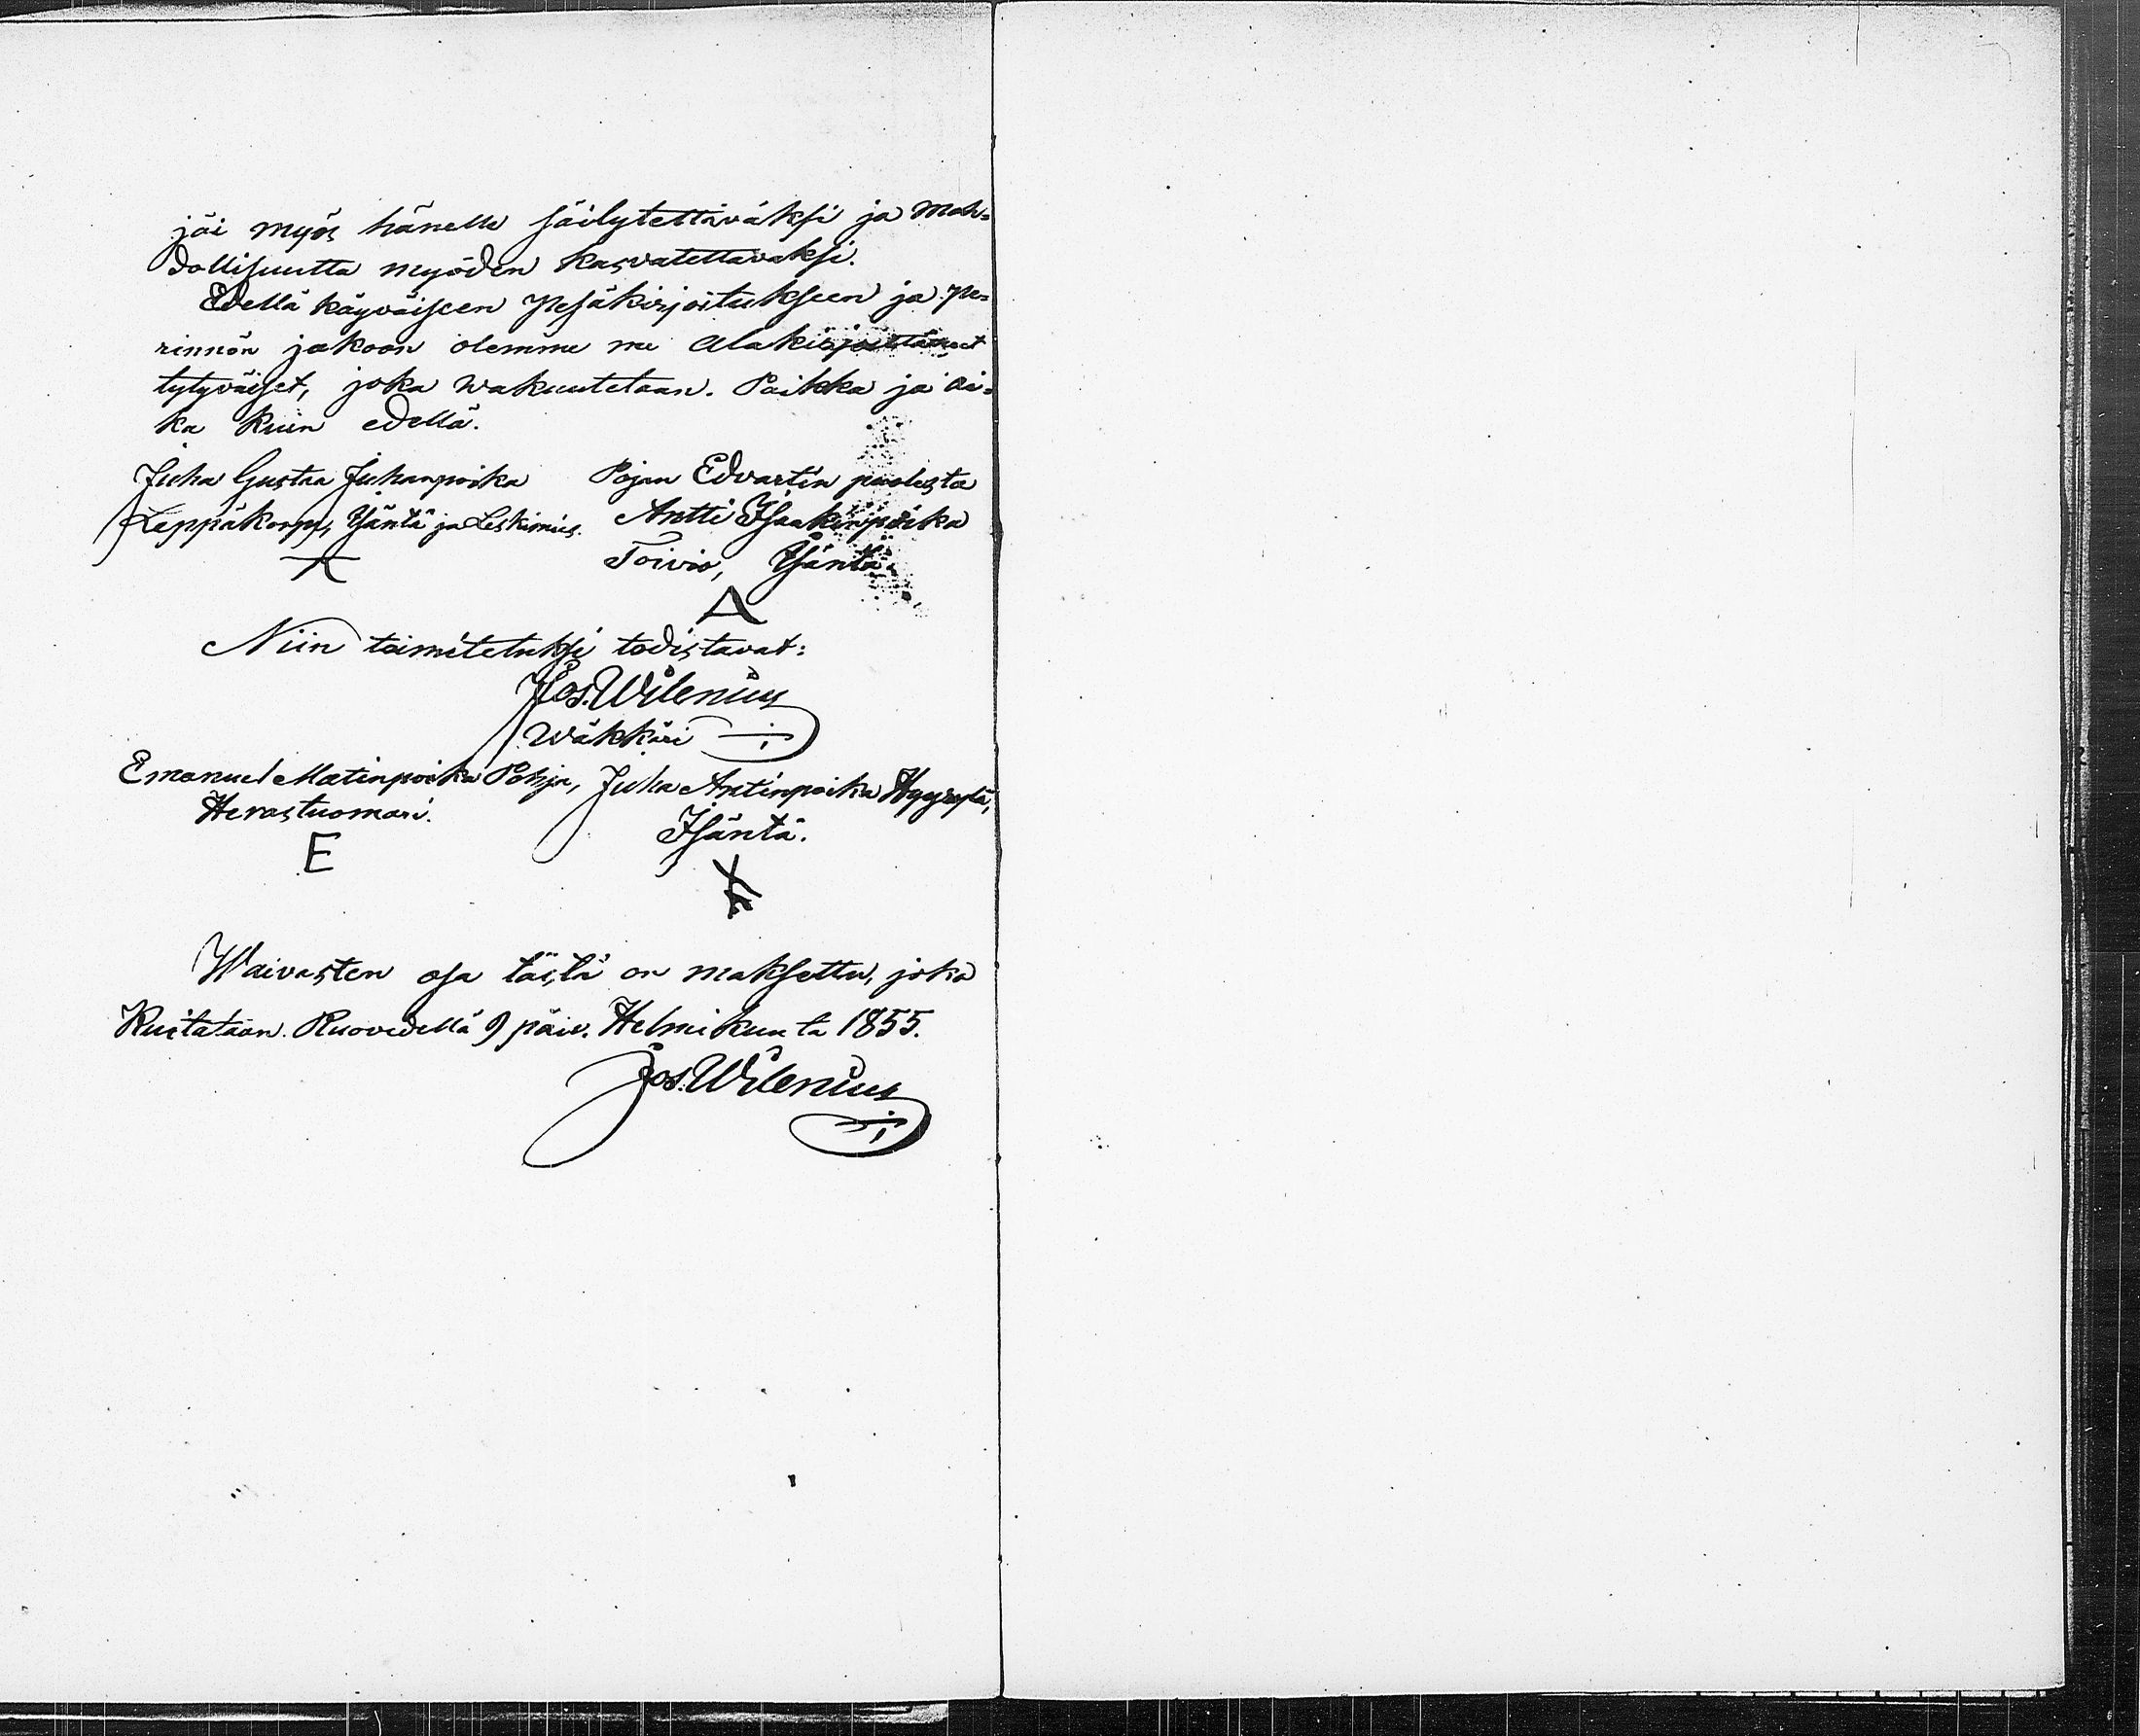 jäi myös hänelle säilytettäväksi ja mah=
dollisuutta myöden kasvatettavaksi.
Edellä käyväiseen pesäkirjoitukseen ja pe=
rinnön jakoon olemme me alakirjoittaneet
tytyväiset, joka wakuutetaan. Paikka ja ai=
ka kuin edellä.
Juha Gustaa Juhanpoika
Leppäkorpi, Isäntä ja Leskimies.
Pojan Edvartin puolesta
Antti Isaakinpoika
Toivio, Isäntä.
A
Niin toimitetuksi todistavat:
Jos. Wilenius
Wäkkäri
Emanuel Matinpoika Pohja,
Herastuomari.
E
Juha Antinpoika
Isäntä.
Waivasten osa tästä on maksettu, joka
Kuitataan. Ruovedellä 9 päiv. Helmikuuta 1855.
Jos. Wilenius